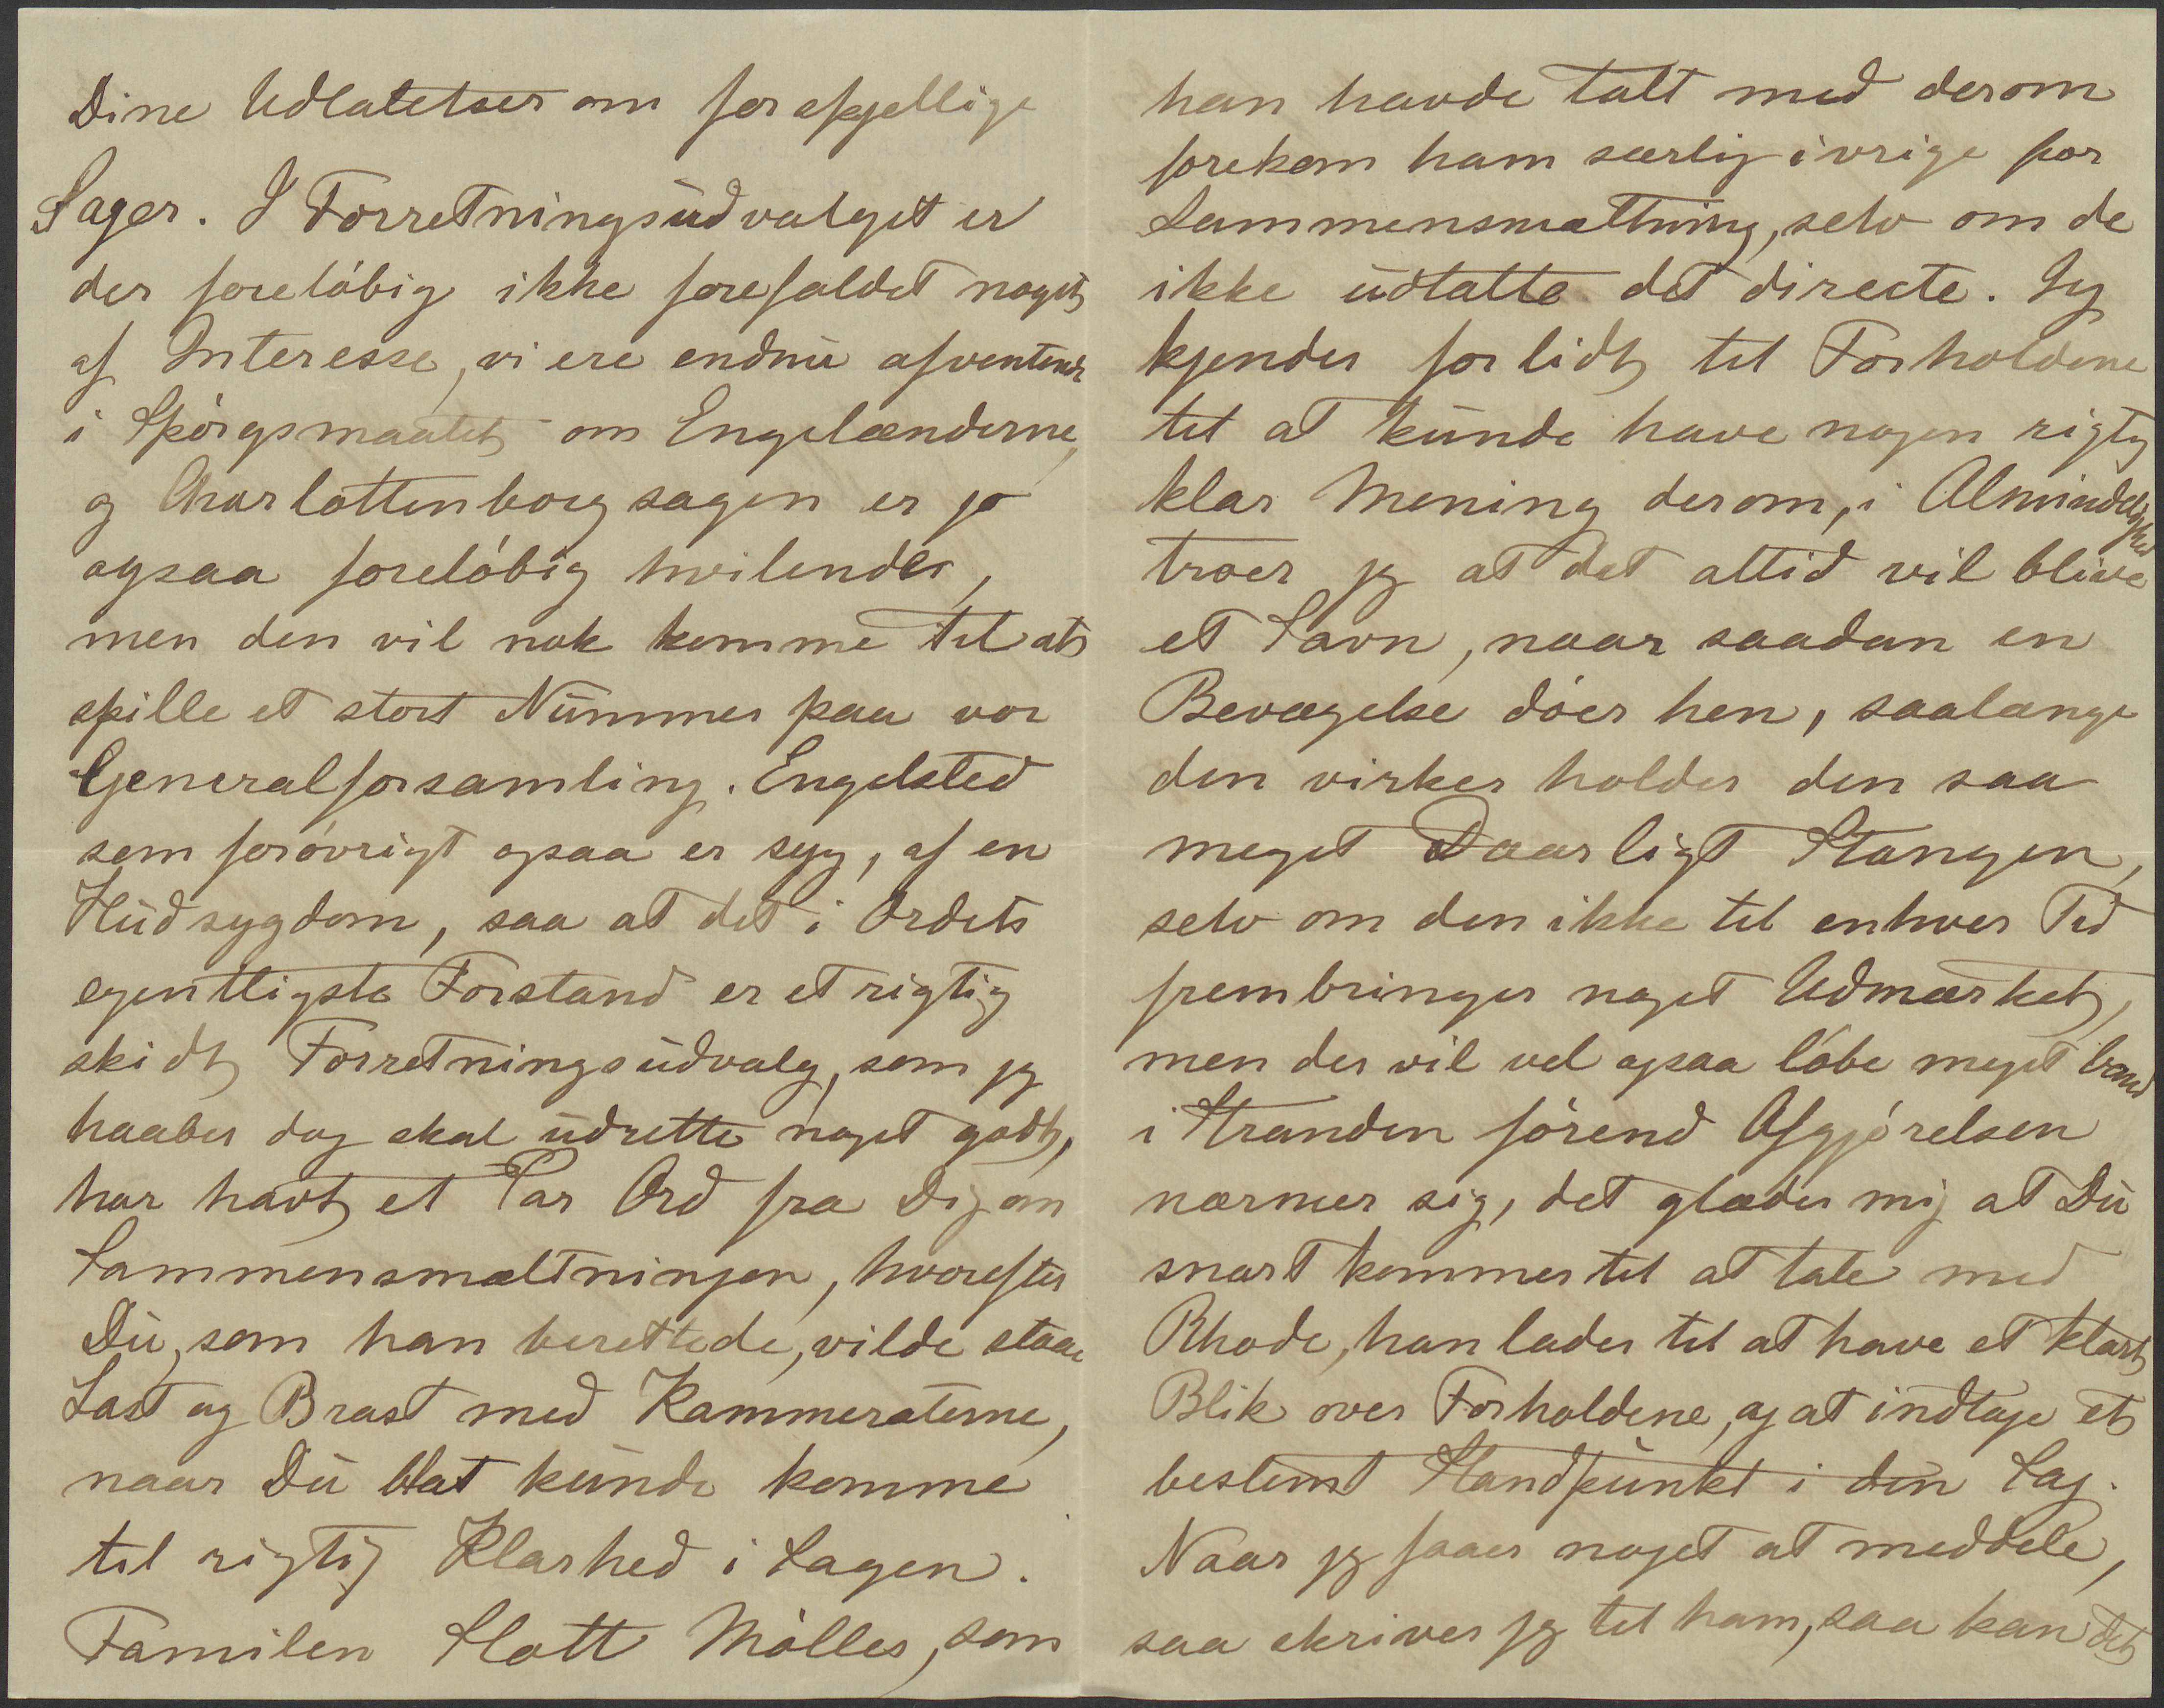 Dine Udlatelser om forskjellige
Sager. I Forretningsudvalget er
der foreløbig ikke forefaldet noget
af Interesse, vi ere endnu afventende
i Spørgsmaalet om Engelænderne,
og Charlottenborgsagen er jo
ogsaa foreløbig hvilende,
men den vil nok komme til at
spille et stort Nummer paa vor
Generalforsamling. Engelsted
som forøvrigt ogsaa er syg, af en
Hudsygdom, saa at det i Ordets
egentligste Forstand er et rigtig
skidt Forretningsudvalg, som jeg
haaber dog skal udrette noget godt,
har havt et Par Ord fra Dig om
Sammensmeltningen, hvorefter
Du, som han berettede, vilde staae
Last og Brast med Kammeraterne,
naar Du blot kunde komme
til rigtig Klarhed i Sagen.
Familen Slott Møller, som
han havde talt med derom
forekom ham særlig ivrige for
Sammensmeltning, selv om de
ikke udtalte det directe. Jeg
kjender for lidt til Forholdene
til at kunde have nogen rigtig
klar Mening derom, i Almindelighed
troer jeg at det altid vil blive
et Savn, naar saadan en
Bevægelse døer hen, saalænge
den virker holder den saa
meget Daarligt Stangen,
selv om den ikke til enhver Tid
frembringer noget Udmærket,
men der vil vel ogsaa løbe meget Vand
i Stranden førend Afgjørelsen
nærmer sig, det glæder mig at Du
snart kommer til at tale med
Rhode, han lader til at have et klart
Blik over Forholdene, og at indtage et
bestemt Standpunkt i den Sag.
Naar jeg faaer noget at meddele,
saa skriver jeg til ham, saa kan det